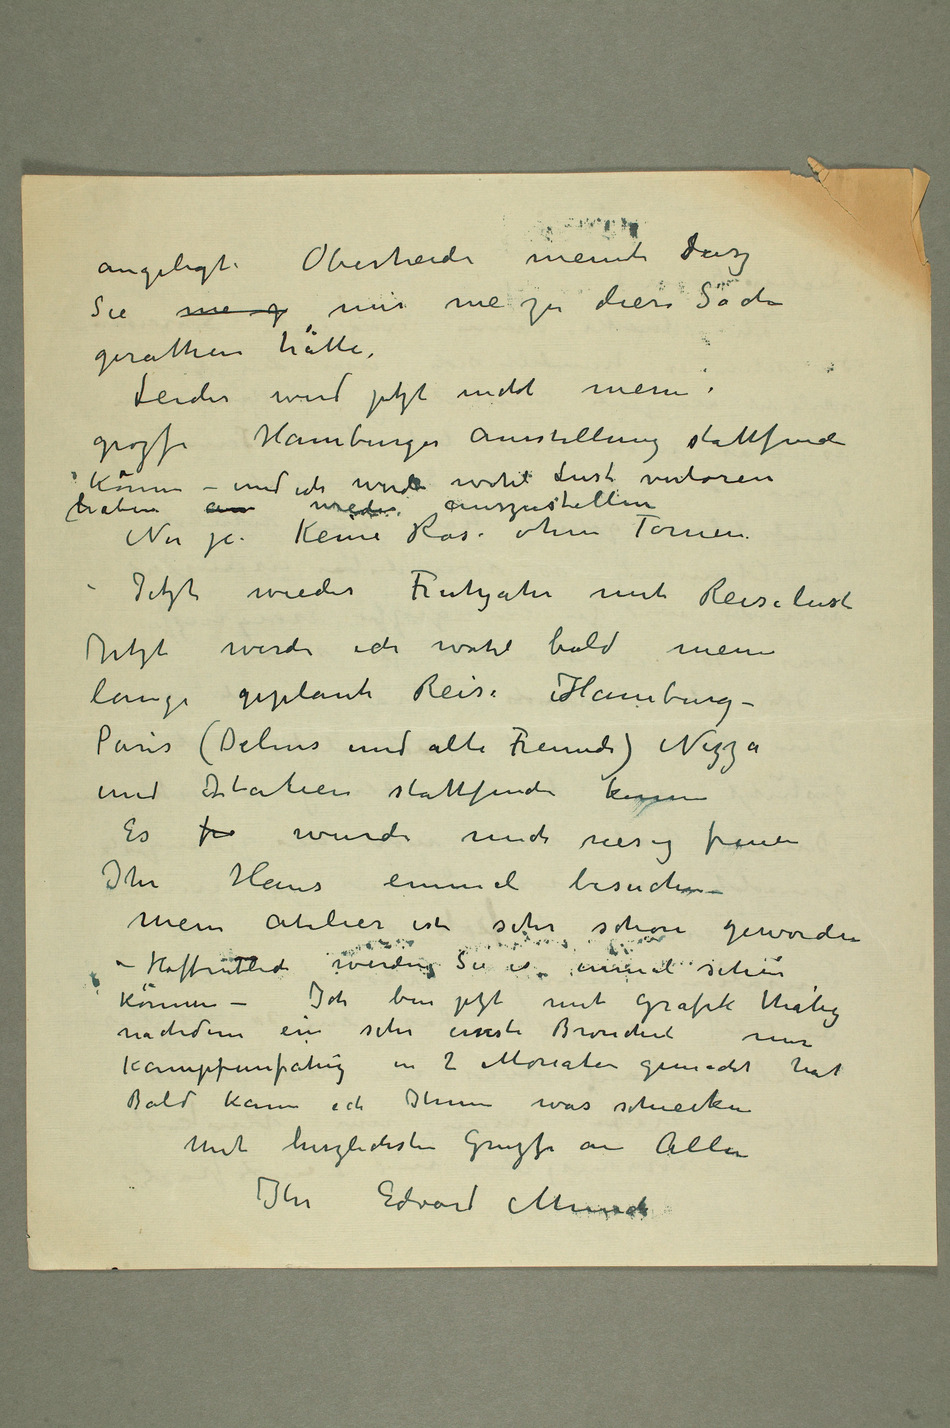 angelegt. Oberheide meinte dasz
Sie me z mir nie zu diese Sache
gerathen hätte.
Leider wird jetzt nicht meine
grosse Hamburger Ausstellung stattfinde
können – und ich werde wohl Lust verloren
haben an wieder auszustellen
Nu ja. Keine Rose ohne Tornen.
– Jetzt wieder Fruhjahr mit Reiselust
Jetzt werde ich wohl bald meine
lange geplante Reise Hamburg –
Paris (Delius und alte Freunde) Nizza
und Italien stattfinde können
Es fr wurde mich riesig freuen
Ihr Haus einmal besuchen –
Mein Atelier ist sehr schön geworden
– Hoffentlich werden Sie es einmal sehen
können – Ich bin jetzt mit Grafik thätig
nachdem ein sehr ernste Bronchit mir
Kampfunfähig in 2 Monaten gemacht hat
Bald kann ich Ihnen was schicken
Mit herzlichsten Grusse an Allen
Ihr Edvard Munch